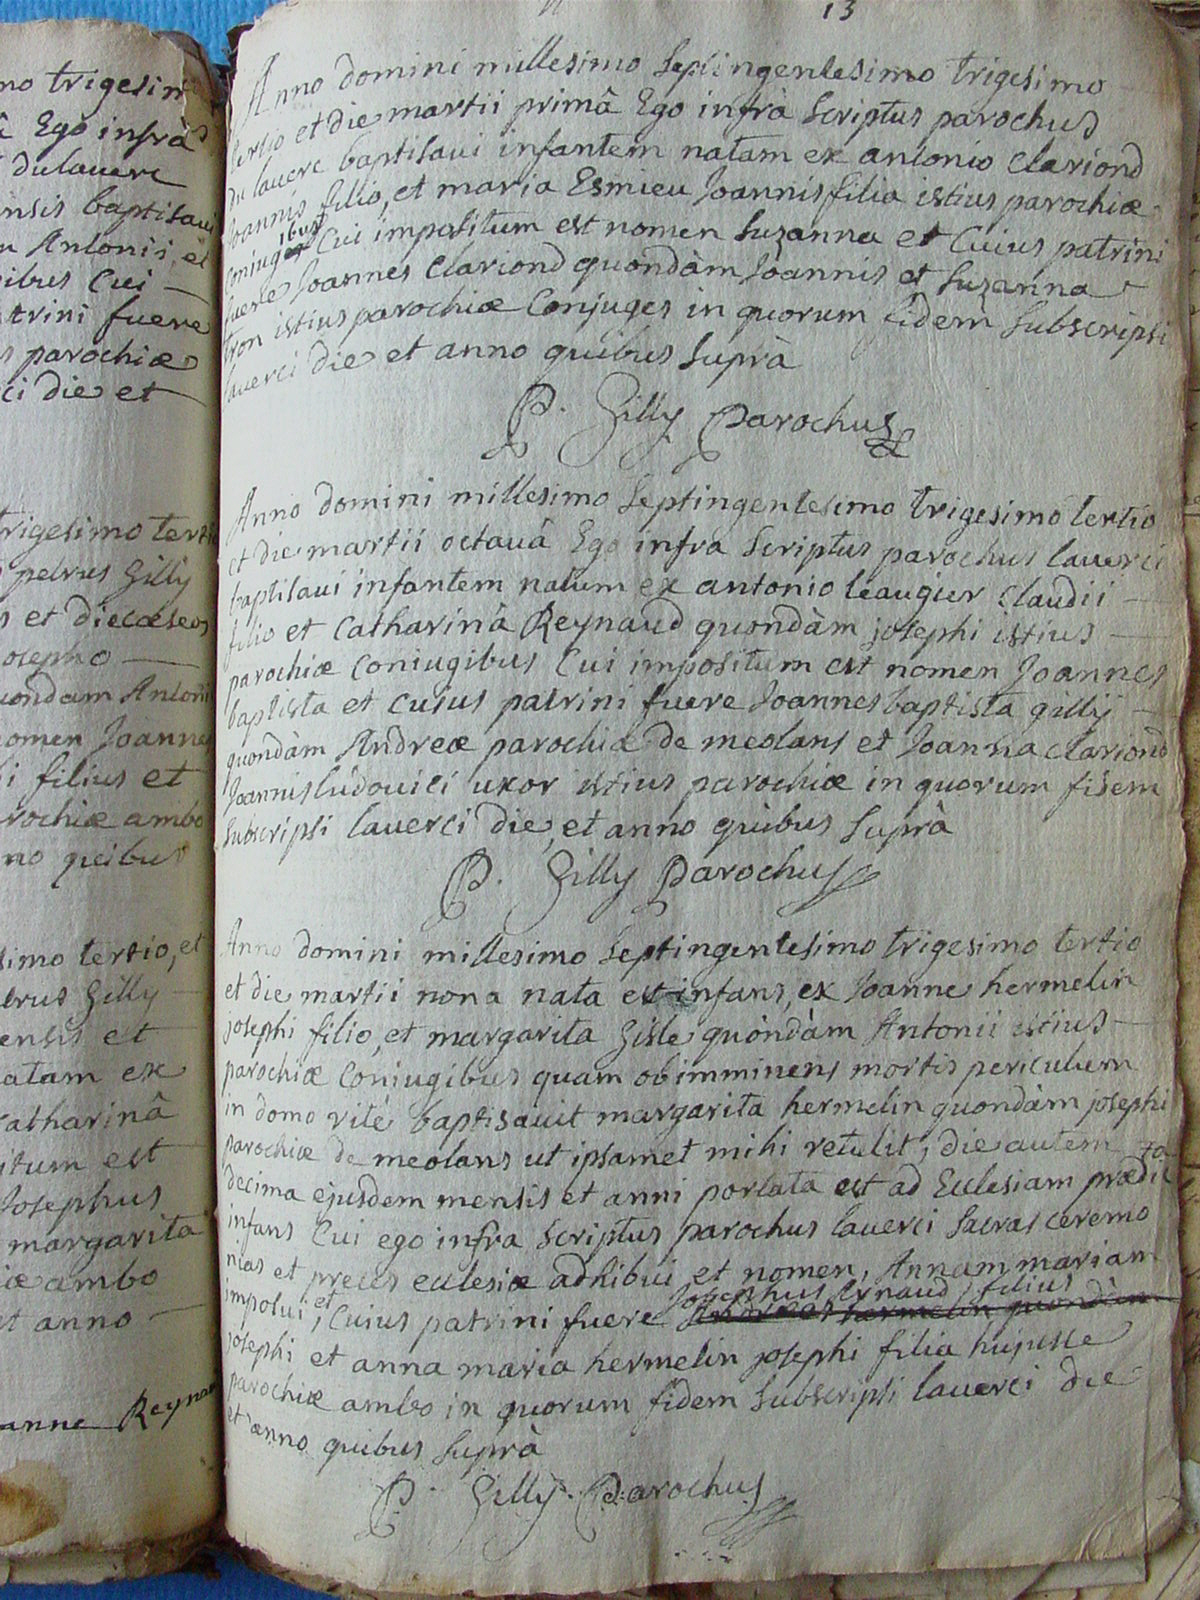 13
no trigesim
â Ego infrà
dulauerc
ensis baptisaui
m Antonii, et
ibus Cui
trini fuere
s parochiæ
ci die et
trigesimo tertio
petrus Gilly
s et diecæseos
osepho
uondam Antonii
nomen Joannes
i filius et
rochiæ ambo
no quibus
simo tertio, et
etrus Gilly
ensis et
natam ex
Catharinâ
situm est
Josephus
margarita
iæ ambo
et anno
anne Reynau
Anno domini millesimo Septingentesimo trigesimo
tertio et die martii primâ Ego infrà Scriptus parochus
du lauerc baptisaui infantem natam ex antonio Clariond
Joannis filio, et maria Esmieu Joannis filia istius parochiæ
Conjugibus Cui impositum est nomen Suzanna et Cuius patrini
fuere Joannes Clariond quondàm Joannis et Suzanna
tron istius parochiæ Conjuges in quorum fidem Subscripsi
lauerci die et anno quibus Suprà
P. Gilly Parochus
Anno domini millesimo Septingentesimo trigesimo tertio
et die martii octauâ Ego infra Scriptus parochus lauerci
baptisaui infantem natum ex antonio leaugier Claudii
filio et Catharinâ Reynaud quondàm josephi istius
parochiæ Coniugibus Cui impositum est nomen Joannes
baptista et Cuius patrini fuere Joannes baptista gilly
quondàm Andreæ parochiæ de meolans et Joanna Clariond
Joannis ludouici uxor istius parochiæ in quorum fidem
Subscripsi lauerci die, et anno quibus Suprà
P. Gilly Parochus
Anno domini millesimo Septingentesimo trigesimo tertio
et die martii nona nata est infans, ex Joanne hermelin
josephi filio, et margarita Gisle quondàm Antonii istius
parochiæ Coniugibus quam ob imminens mortis periculum
in domo rité baptisauit margarita hermelin quondàm josephi
parochiæ de meolans ut ipsamet mihi retulit, die autem
decima ejusdem mensis et anni portata est ad Ecclesiam prædicta
infans Cui ego infra Scriptus parochus lauerci Sacras ceremo
nias et preces ecclesiæ adhibui et nomen, Annam mariam
imposui, et Cuius patrini fuere Josephus Arnaud filius
josephi et anna maria hermelin josephi filia hujusce
parochiæ ambo in quorum fidem Subscripsi lauerci die
et anno quibus Suprà
P. Gilly. Parochus